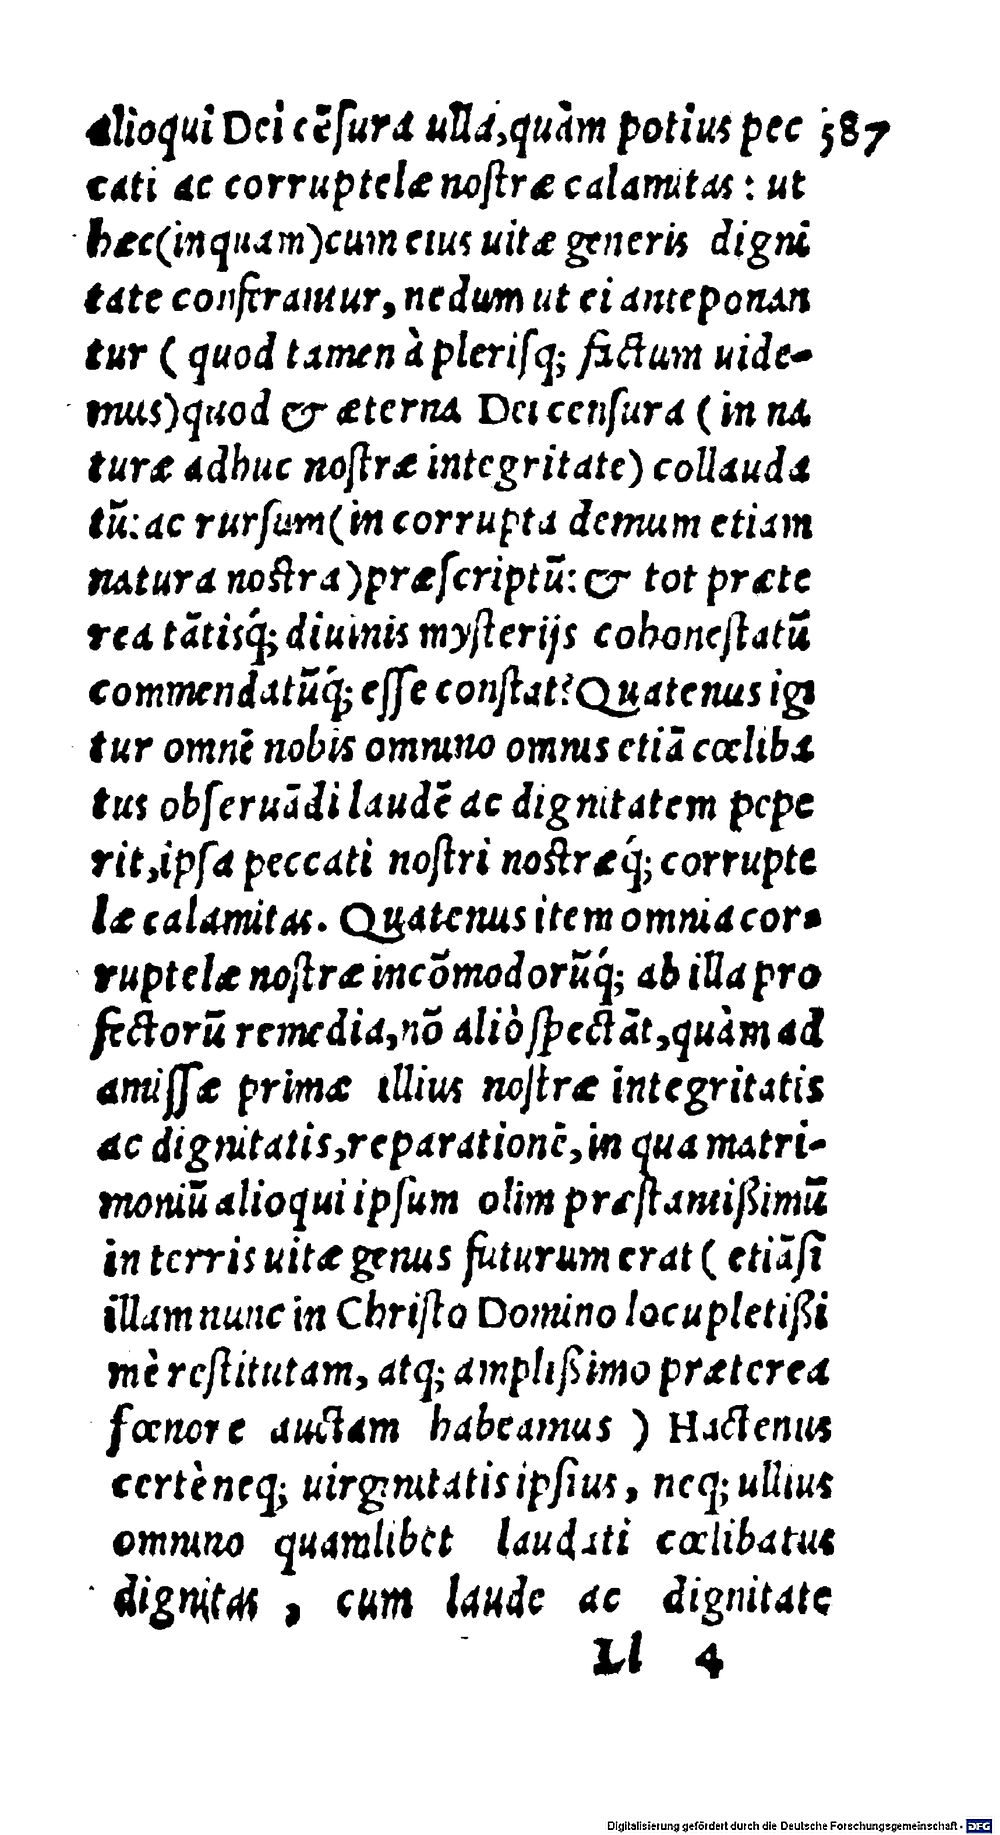 alioqui Dei cẽſura ulla, quàm potius pec 587
cati ac corruptelæ noſtræ calamitas: ut
hæc (inquam) cum eius uitæ generis digni
tate conferantur, nedum ut ei anteponan
tur ( quod tamen à pleriſq; factum uide-
mus) quod & æterna Dei cenſura ( in na
turæ adhuc noſtræ integritate) collauda
tũ: ac rurſum (in corrupta demum etiam
natura noſtra) præſcriptũ: & tot præte
rea tãtisq́; diuinis myſterijs cohoneſtatũ
commendatũq́; eſſe conſtat? Quatenus igi
tur omnẽ nobis omnino omnis etiã cœliba
tus obſeruãdi laudẽ ac dignitatem pepe
rit, ipſa peccati noſtri noſtræq́; corrupte
læ calamitas. Quatenus item omnia cor-
ruptelæ noſtræ incõmodorũq́; ab illa pro
fectorũ remedia, nõ aliò ſpectãt, quàm ad
amiſſæ primæ illius noſtræ integritatis
ac dignitatis, reparationẽ, in qua matri-
moniũ alioqui ipſum olim præſtantißimũ
in terris uitæ genus futurum erat ( etiãſi
illam nunc in Chriſto Domino locupletißi
mè reſtitutam, atq; amplißimo præterea
fœnore auctam habeamus ) Hactenus
certè neq; uirginitatis ipſius, neq; ullius
omnino quamlibet laudati cœlibatus
dignitas, cum laude ac dignitate
Ll 4
Digitalisierung gefördert durch die Deutsche Forschungsgemeinschaft - DFG